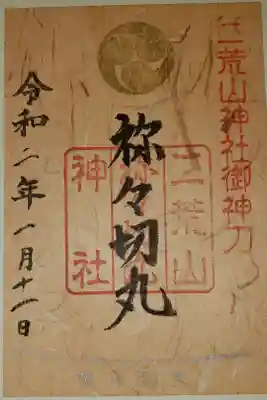 二荒山神社御神刀
二荒山
祢々切丸
神社
令和二年一月十一日